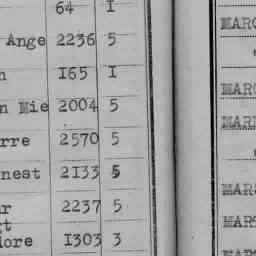 64 I
Ange 2236 5
n I65 I
n Mie 2004 5
rre 2570 5
nest 2133 5
r 2237 5
t
lore I303 3
MARC
MARC
MARI
MARS
MART